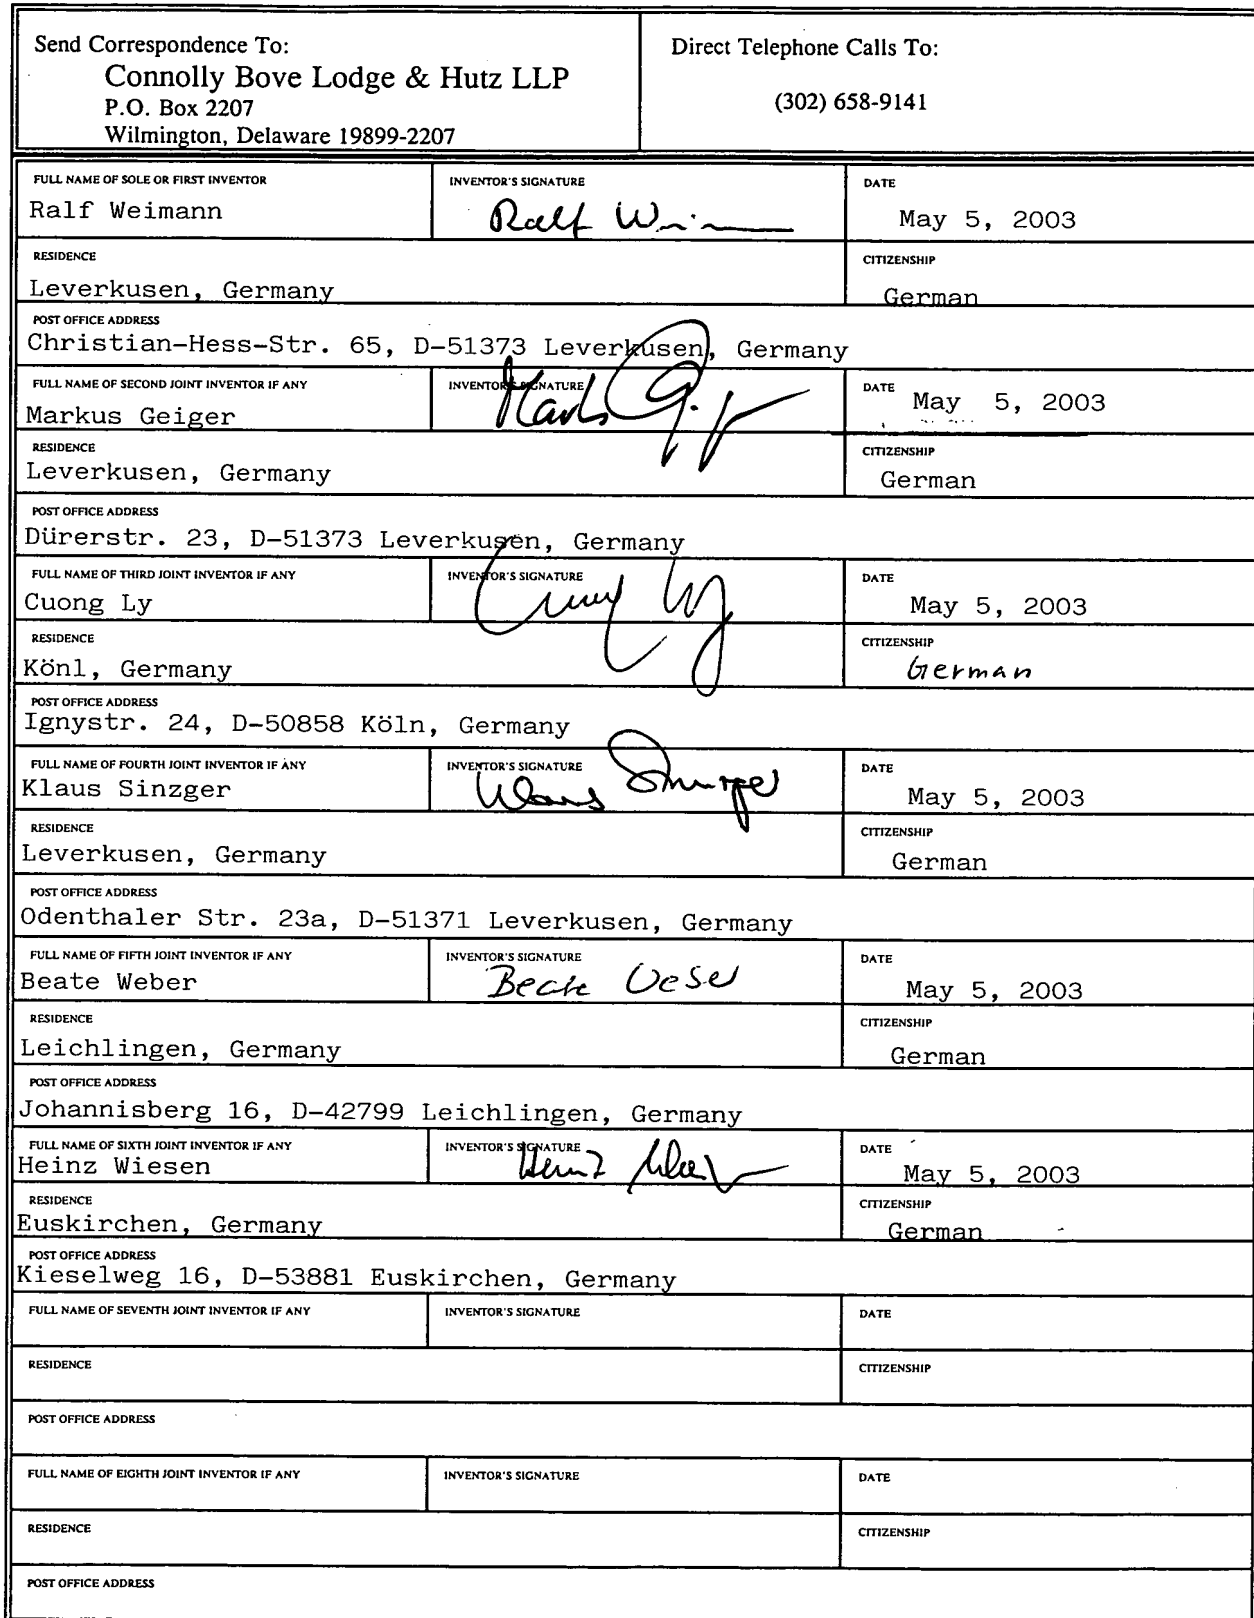 Send Correspondence To:
Connolly Bove Lodge & Hutz LLP
P.O. Box 2207
Wilmington, Delaware 19899-2207
Direct Telephone Calls To:
(302) 658-9141
FULL NAME OF SOLE OR FIRST INVENTOR INVENTOR'S SIGNATURE DATE
Ralf Weimann Ralf May 5, 2003
RESIDENCE CITIZENSHIP
Leverkusen, Germany German
POST OFFICE ADDRESS
Christian-Hess-Str. 65, D-51373 Leverkusen, Germany
FULL NAME OF SECOND JOINT INVENTOR IF ANY INVENTOR'S SIGNATURE DATE
Markus Geiger May 5, 2003
RESIDENCE CITIZENSHIP
Leverkusen, Germany German
POST OFFICE ADDRESS
Dürerstr. 23, D-51373 Leverkusen, Germany
FULL NAME OF THIRD JOINT INVENTOR IF ANY INVENTOR'S SIGNATURE DATE
Cuong Ly May 5, 2003
RESIDENCE CITIZENSHIP
Könl, Germany German
POST OFFICE ADDRESS
Ignystr. 24, D-50858 Köln, Germany
FULL NAME OF FOURTH JOINT INVENTOR IF ANY INVENTOR'S SIGNATURE DATE
Klaus Sinzger Klaus May 5, 2003
RESIDENCE CITIZENSHIP
Leverkusen, Germany German
POST OFFICE ADDRESS
Odenthaler Str. 23a, D-51371 Leverkusen, Germany
FULL NAME OF FIFTH JOINT INVENTOR IF ANY INVENTOR'S SIGNATURE DATE
Beate Weber Beate May 5, 2003
RESIDENCE CITIZENSHIP
Leichlingen, Germany German
POST OFFICE ADDRESS
Johannisberg 16, D-42799 Leichlingen, Germany
FULL NAME OF SIXTH JOINT INVENTOR IF ANY INVENTOR'S SIGNATURE DATE
Heinz Wiesen Heinz May 5, 2003
RESIDENCE CITIZENSHIP
Euskirchen, Germany German
POST OFFICE ADDRESS
Kieselweg 16, D-53881 Euskirchen, Germany
FULL NAME OF SEVENTH JOINT INVENTOR IF ANY INVENTOR'S SIGNATURE DATE
RESIDENCE CITIZENSHIP
POST OFFICE ADDRESS
FULL NAME OF EIGHTH JOINT INVENTOR IF ANY INVENTOR'S SIGNATURE DATE
RESIDENCE CITIZENSHIP
POST OFFICE ADDRESS